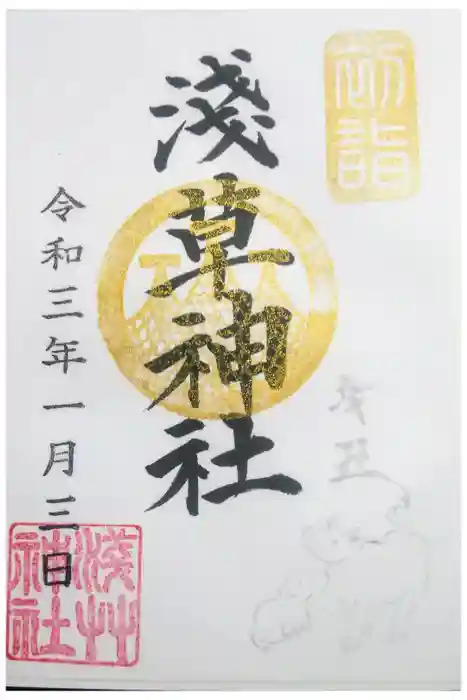 初詣
淺草神社
令和三年一月三日
辛丑
淺草神社